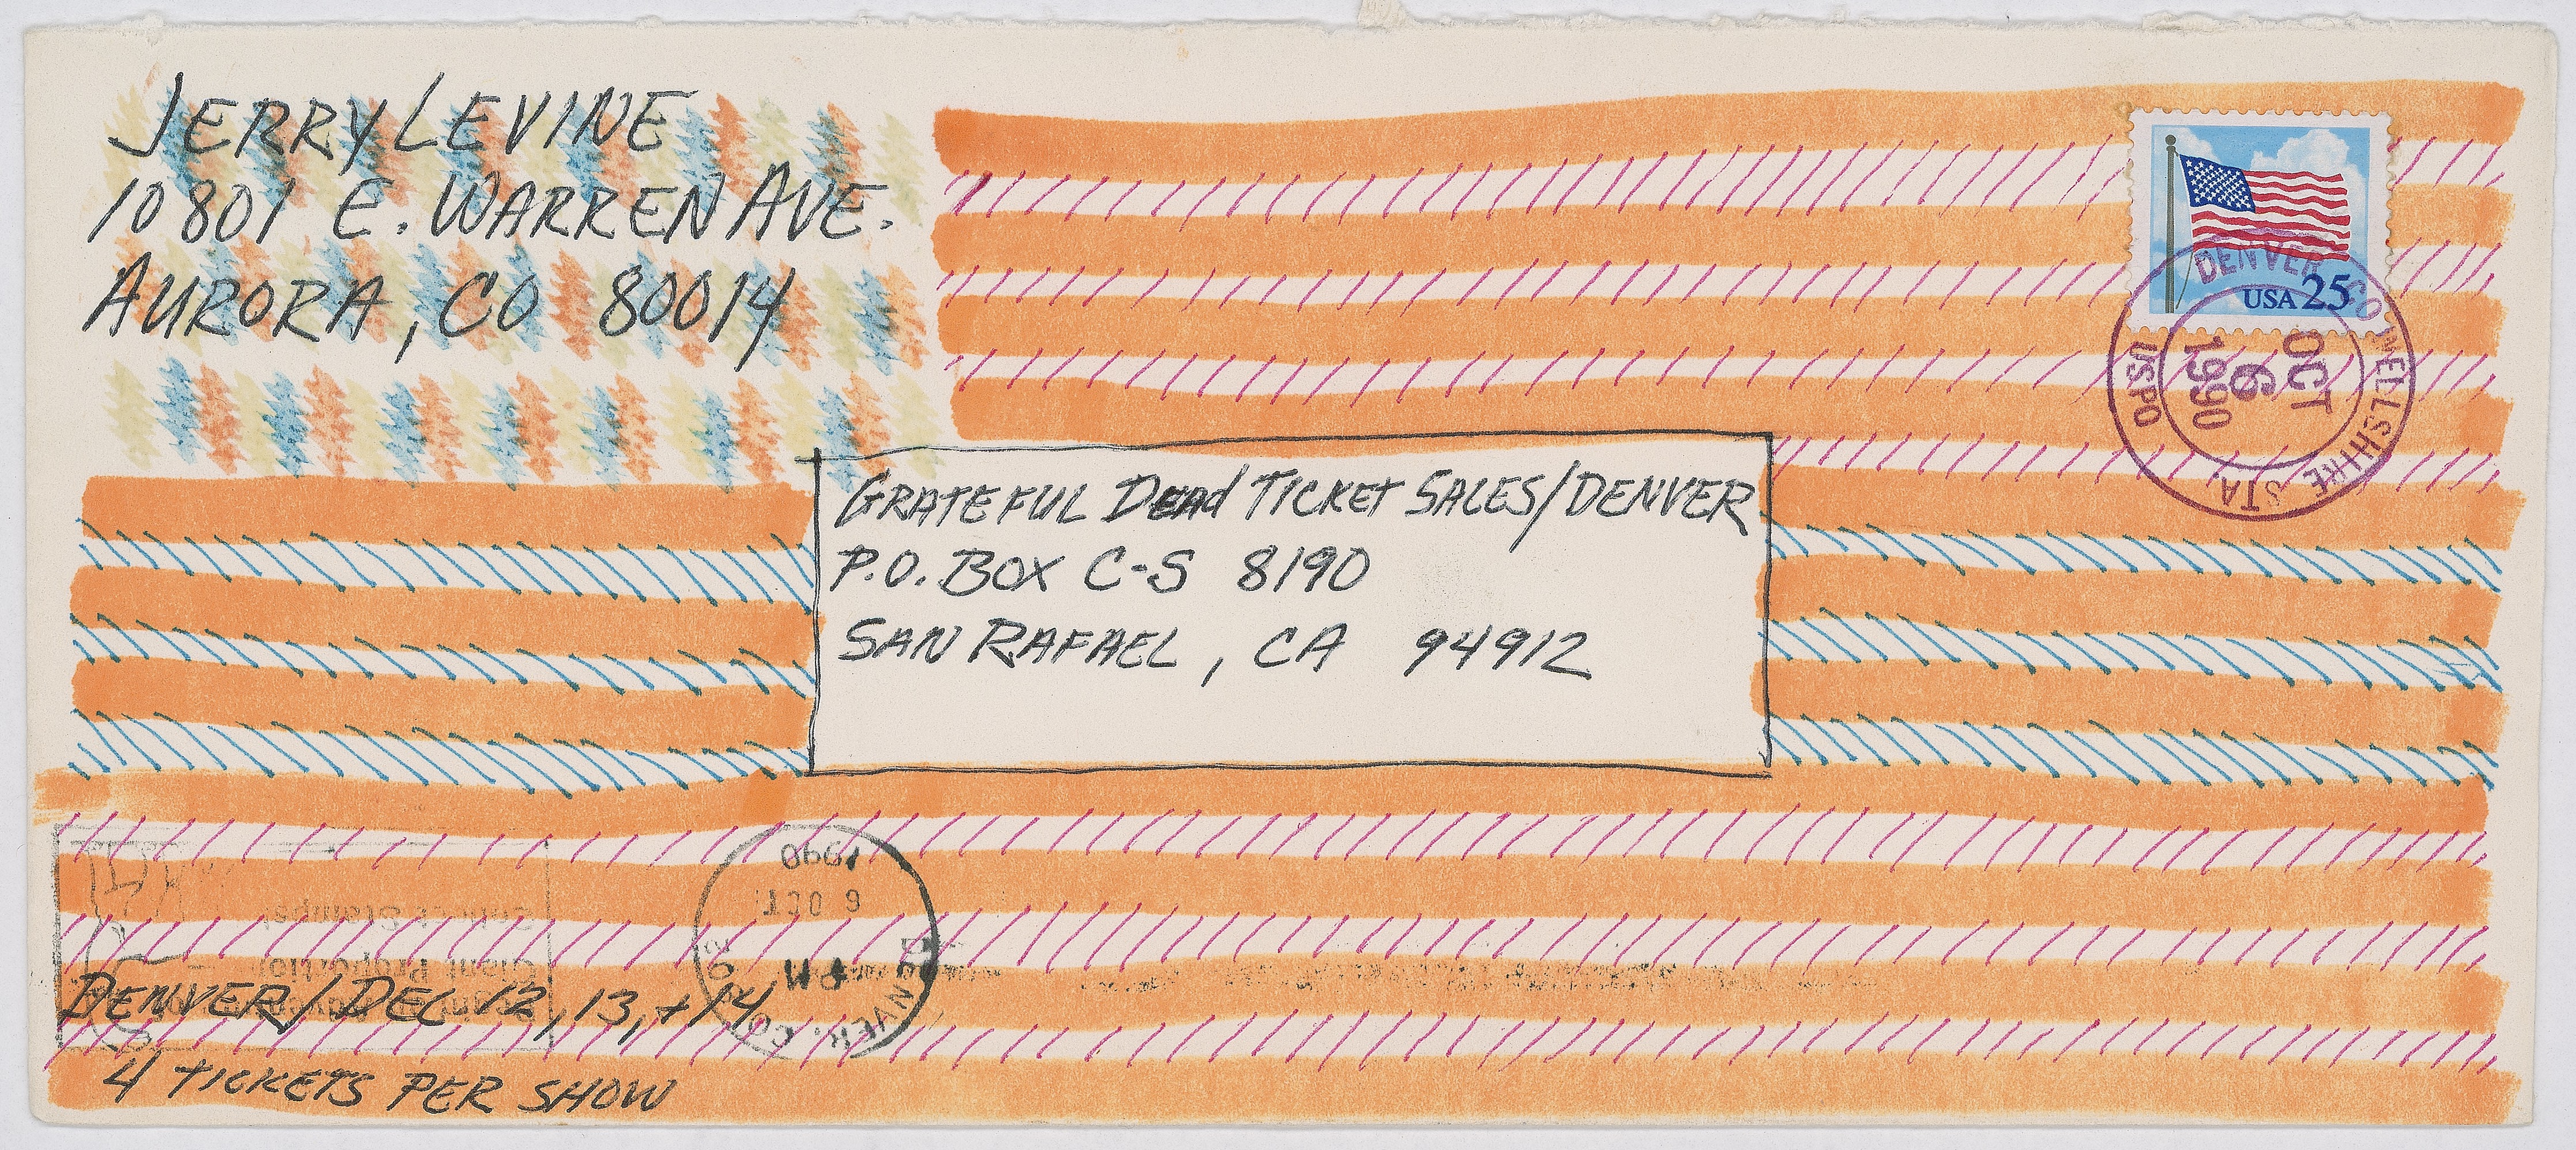 JERRY LEVINE
10801 E. WARREN AVE.
AURORA, CO 80014
USA 25
DENVER CO WELLSHIRE STA
USPO
OCT
6
1990
GRATEFUL DEAD TICKET SALES/DENVER
P.O. BOX C-S 8190
SAN RAFAEL, CA 94912
1990
6 OCT
PM
DENVER, CO
Giant Proportion
DENVER/DEC 12, 13, + 14
4 TICKETS PER SHOW